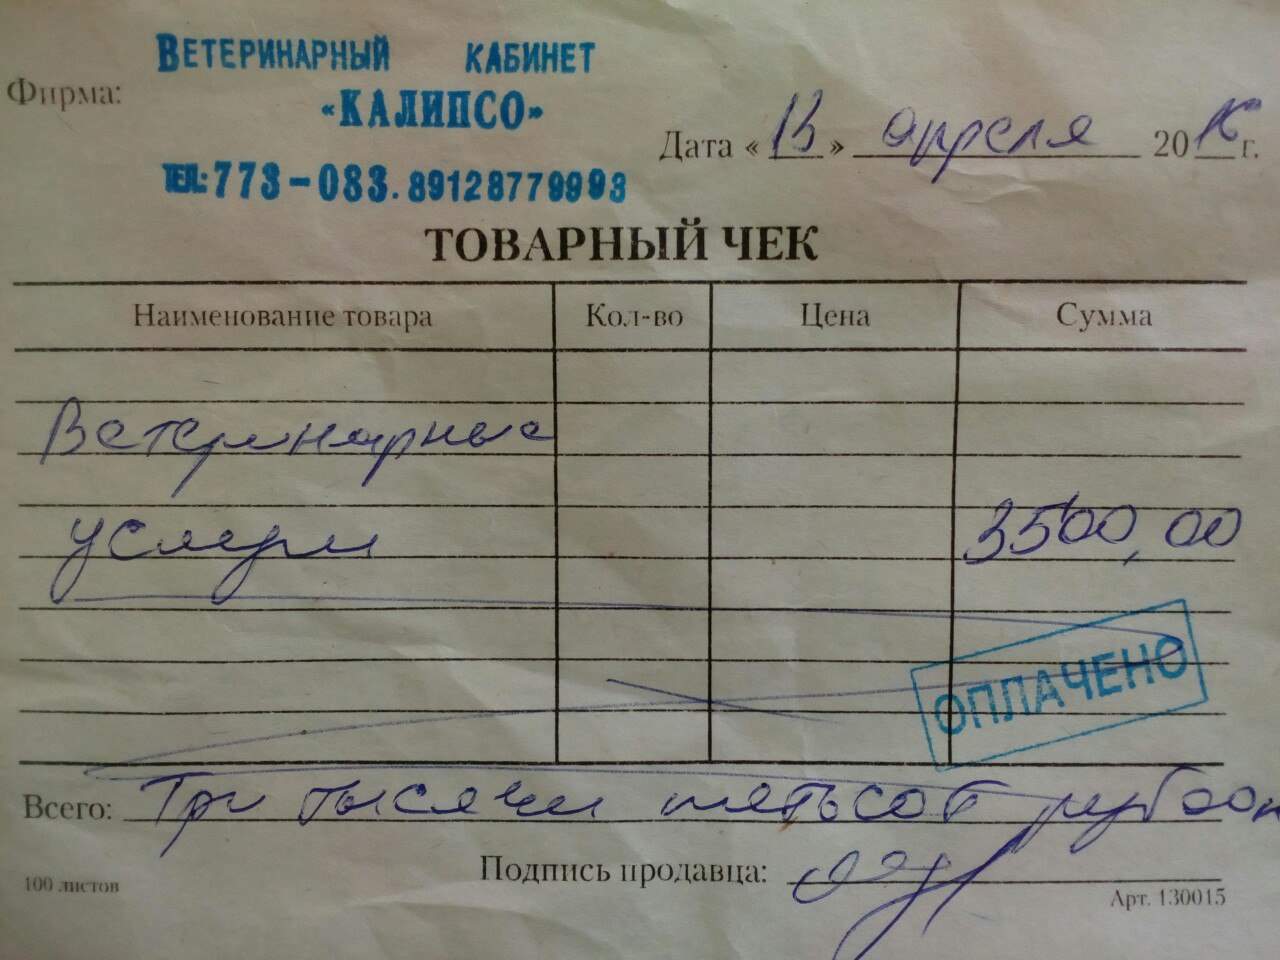 ВЕТЕРИНАРНЫЙ КАБИНЕТ
Фирма: «КАЛИПСО»
Дата «13» апреля 20 г.
ТЕЛ.: 773-083. 89128779993
ТОВАРНЫЙ ЧЕК
Наименование товара Кол-во Цена Сумма
Ветеринарные
услуги 3500,00
ОПЛАЧЕНО
Всего: Три тысячи пятьсот рублей
Подпись продавца:
100 листов
Арт. 130015